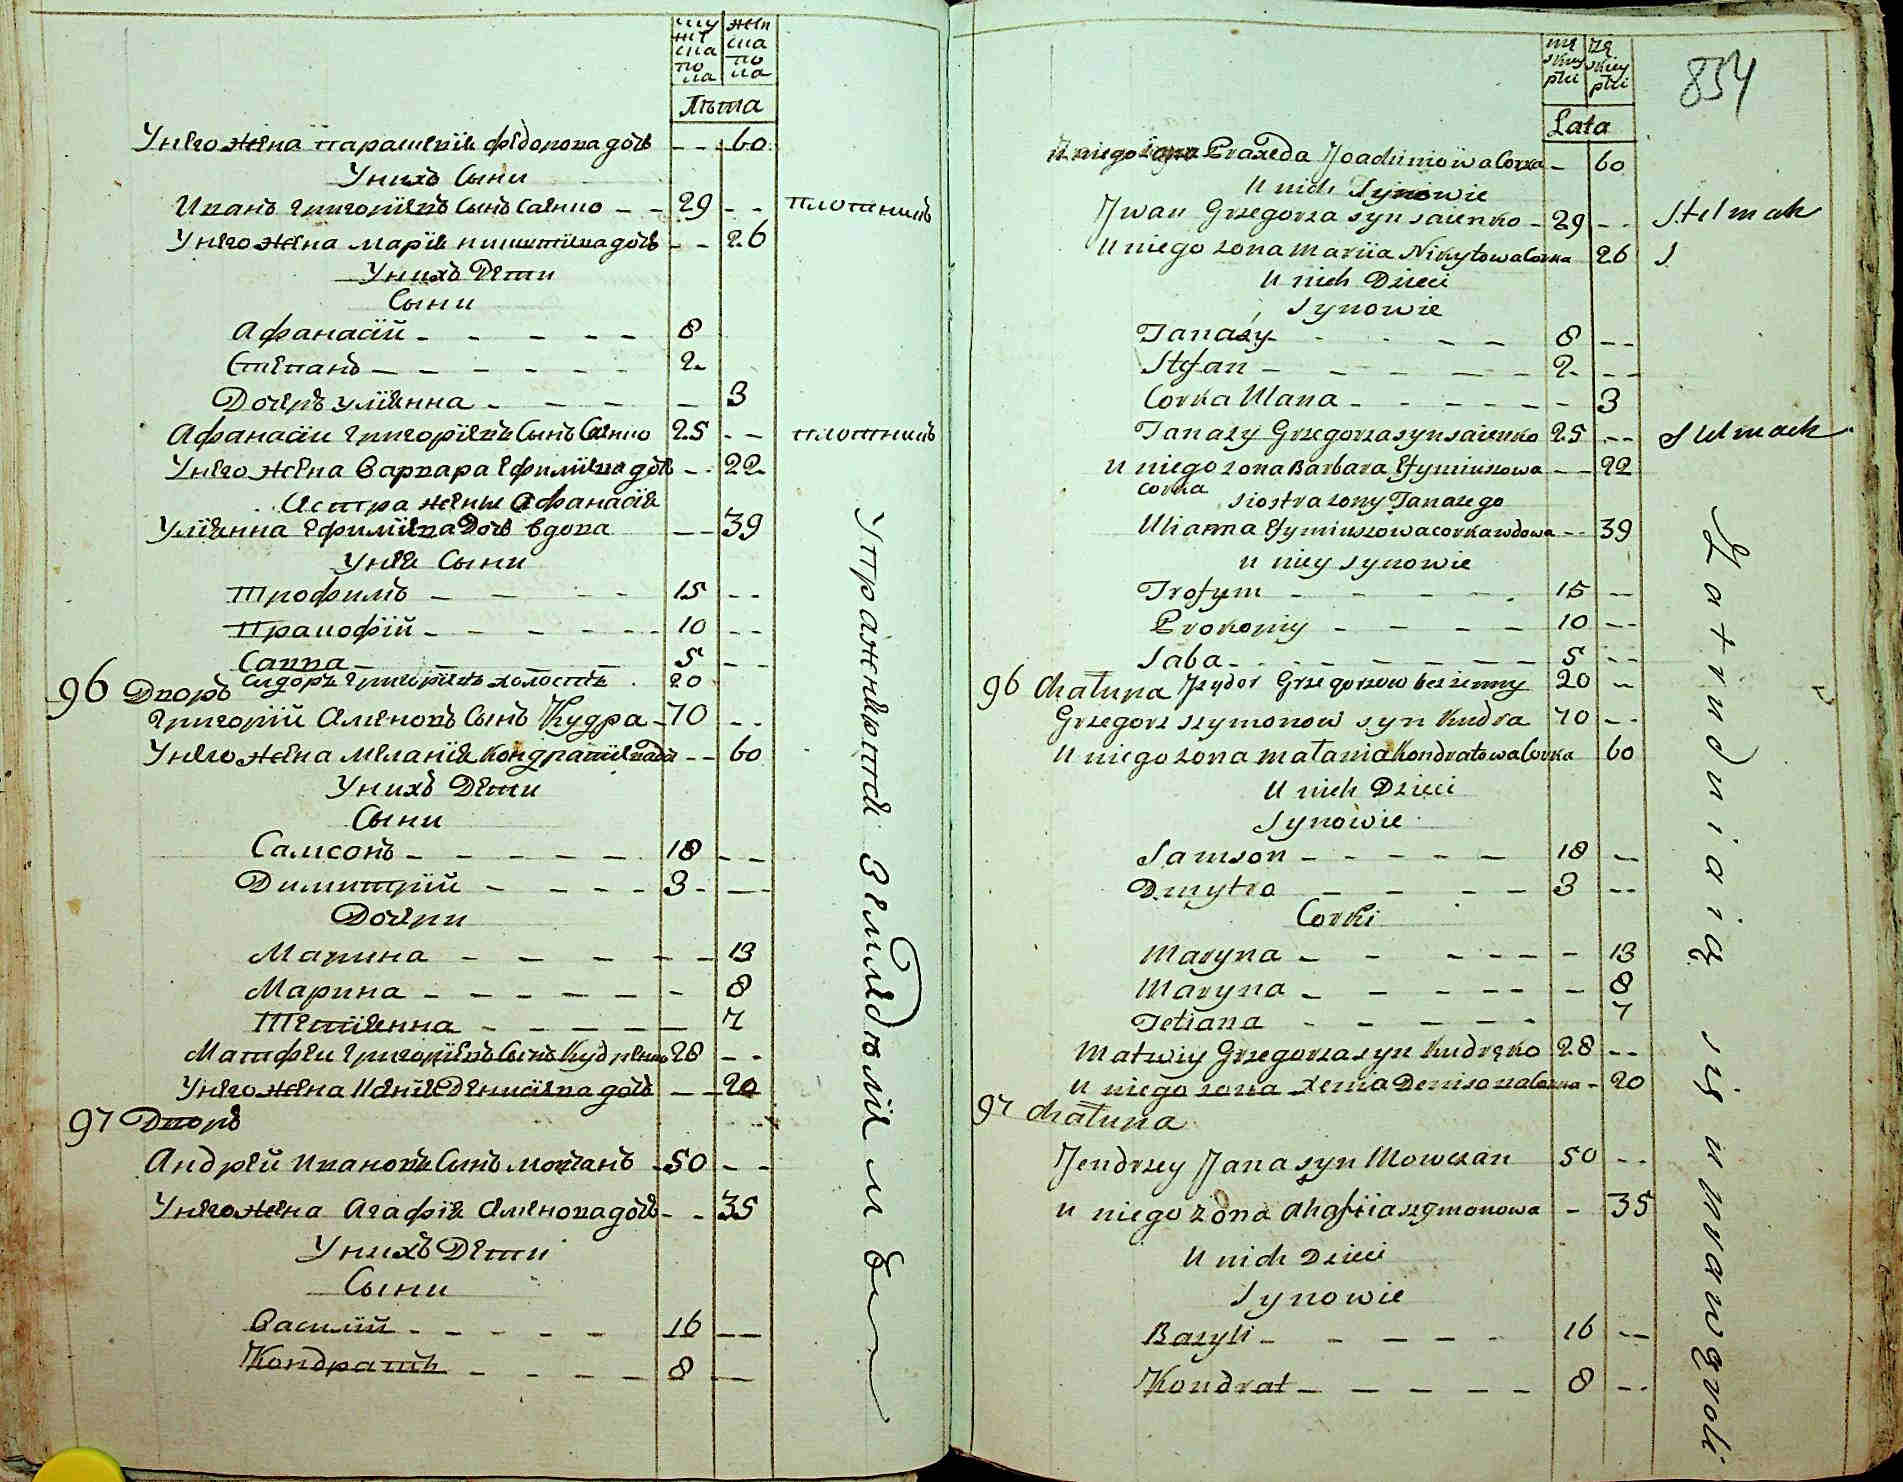 мужеска пола
женска пола
Лѣта
У него жена Параскевія Федорова дочь – – 60
У нихъ Сыни
Иванъ Григоріевъ Сынъ Саенко – – 29 – – плотникъ
У него жена Марія Никитіева дочь – – 26
У нихъ Дети
Сыни
Афанасій – – – – – 8
Степанъ – – – – – – 2
Дочеръ Уліянна – – – – 3
Афанасіи Григоріевъ Сынъ Саенко 25 – – плотникъ
У него жена Варвара Ефиміева дочь – – 22
Сестра жены Афанасія
Уліянна Ефиміева Дочь вдова – – 39
У нея Сыни
Трофимъ – – – – 15 – –
Пракофій – – – – – 10 – –
Савва – – – – 5 – –
Сидоръ Григоріевъ холостъ 20
96 Дворъ
Григорій Семеновъ Сынъ Кудра – 70 – –
У него жена Меланія Кондратіева дочь – – 60
У нихъ Дети
Сыни
Самсонъ – – – – – 18 – –
Димитрій – – – – 3 – – –
Дочери
Марина – – – – – – 13
Марина – – – – – – 8
Тетіянна – – – – – 7
Матфеи Григоріевъ Сынъ Кудренко 28 – –
У него жена Ксенія Денисіева дочь – – 20
97 Дворъ
Андрей Ивановъ Сынъ Мовчанъ – 50 – –
У него жена Агафія Семенова дочь – – 35
У нихъ Дети
Сыни
Василій – – – – – 16 – –
Кондратъ – – – – – 8 – –
Упражняются земледѣліемъ
834
mę skiey płci
żę skiey płci
Lata
U niego żona Praxeda Joachimowa Corka – 60
U nich Synowie
Jwan Grzegorza syn saienko – 29 – – Stelmah
U niego zona Mariia Nikytowa Corka 26 S
U nich Dzieci
Synowie
Tanasy – – – – 8 – –
Stefan – – – – – – 2 – –
Corka Ulana – – – – – – – 3
Tanazy Grzegorza syn saienko 25 – – Stelmach
U niego zona Barbara Efymiuszowa – – 22
corka
siostra zony Tanazego
Uliana Efymiuszowa corka wdowa – – 39
u niey synowie
Trofym – – – – – 15 – –
Prokopiy – – – – – 10 – –
Saba – – – – – – – 5 – –
96 Chałupa Jzydor Grzegorzow bezzenny 20 –
Grzegorz szymonow syn Kudra 70 – –
U niego zona Małania Kondratowa Corka 60
U nich Dzieci
Synowie
Samson – – – – – 18 – –
Dmytro – – – – – 3 – –
Corki
Maryna – – – – – – 13
Maryna – – – – – – 8
Tetiana – – – – – 7
Matwiy Grzegorza syn Kudręko 28 – –
U niego zona Xenia Denisowa Corka – 20
97 Chałupa
Jendrzey Jana syn Mowczan 50 – –
U niego zona Ahafiia szymonowa – 35
U nich Dzieci
Synowie
Bazyli – – – – – 16 – –
Kondrat – – – – – 8 – –
Zatrudniaią się uprawą roli